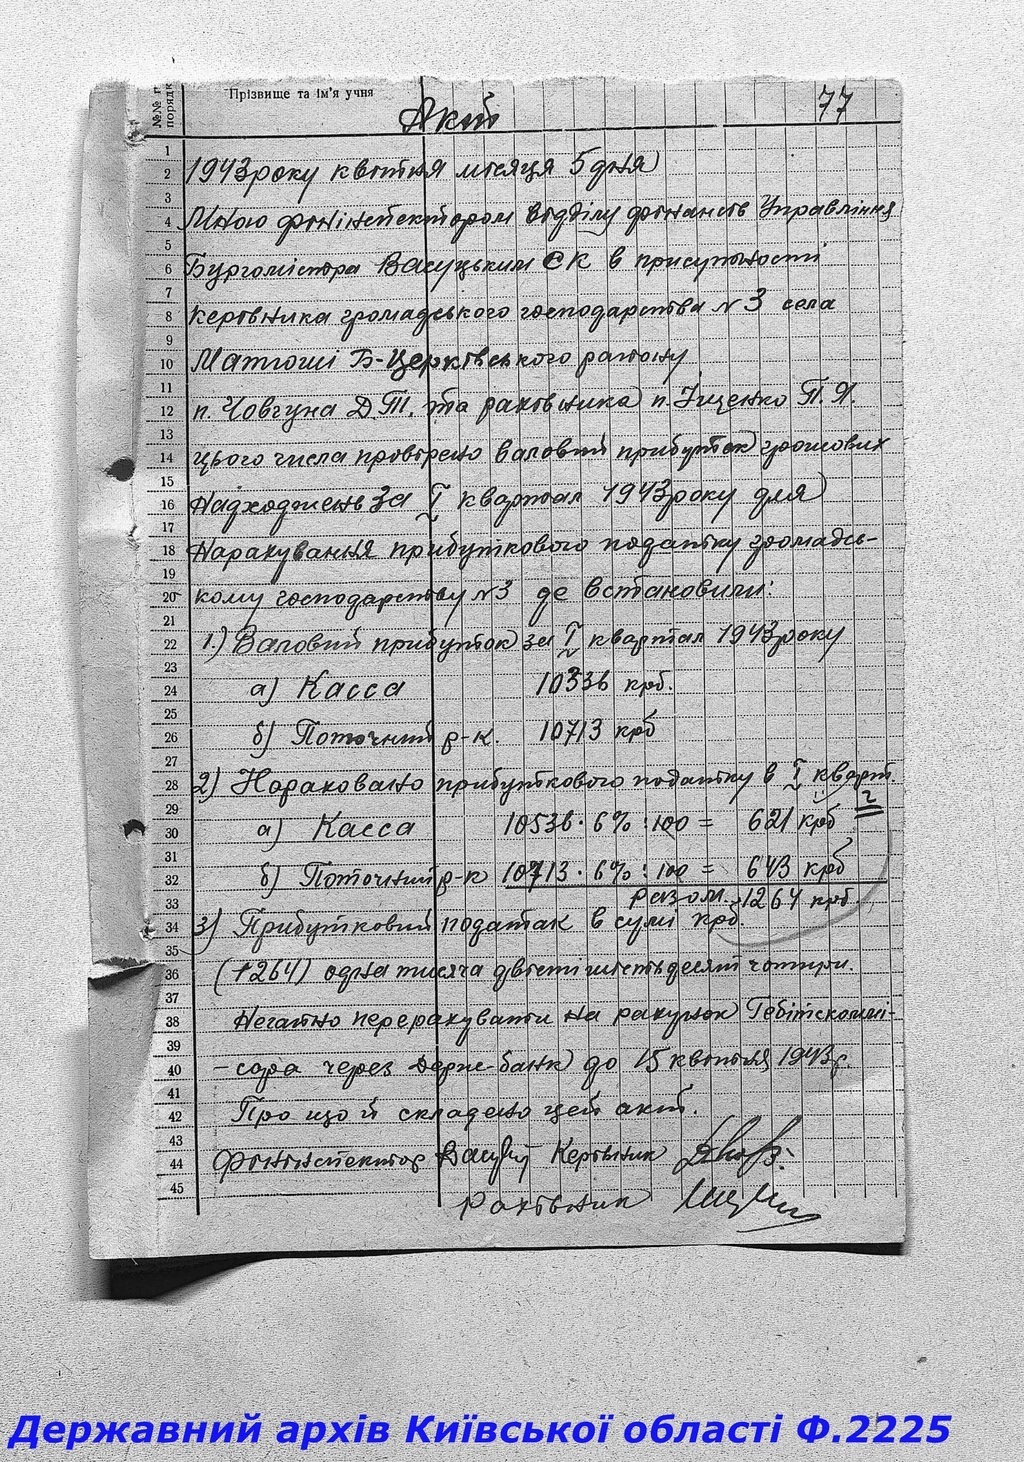 №№ порядк
Прізвище та ім'я учня
77
Акт
1 2 1943 року квітня місяця 5 дня
3 4 Мною фінінспектором відділу фінансів Управління
5 6 Бургомістра Васуцьким Є К в присутності
7 8 Керівника громадського господарства №3 села
9 10 Матюші Б-Церківського району
11 12 п. Човгуна Д.Т. та рахівника п. Іщенко П. Я.
13 14 цього числа провірено валовий прибуток грошових
15 16 Надходжень за I квартал 1943 року для
17 18 Нарахування прибуткового податку громадсь-
19 20 кому господарству №3 де встановили:
21 22 1.) Валовий прибуток за I квартал 1943 року
23 24 а) Касса 10336 крб.
25 26 б) Поточний р-к. 10713 крб
27 28 2) Нараховано прибуткового податку в I кварт.
29 30 а) Касса 10336 · 6% : 100 = 621 крб
31 32 б) Поточний р-к 10713 · 6% : 100 = 643 крб
33 Разом 1264 крб
34 3) Прибутковий податак в сумі крб.
35 36 (1264) одна тисяча двісті шістьдесят чотири.
37 38 Негайно перерахувати на рахунок Гебітскоммі-
39 40 -сара через Держ-банк до 15 квітня 1943 р.
41 42 Про що й складено цей акт.
43 44 Фінінспектор Керівник
45 Рахівник
Державний архів Київської області Ф.2225